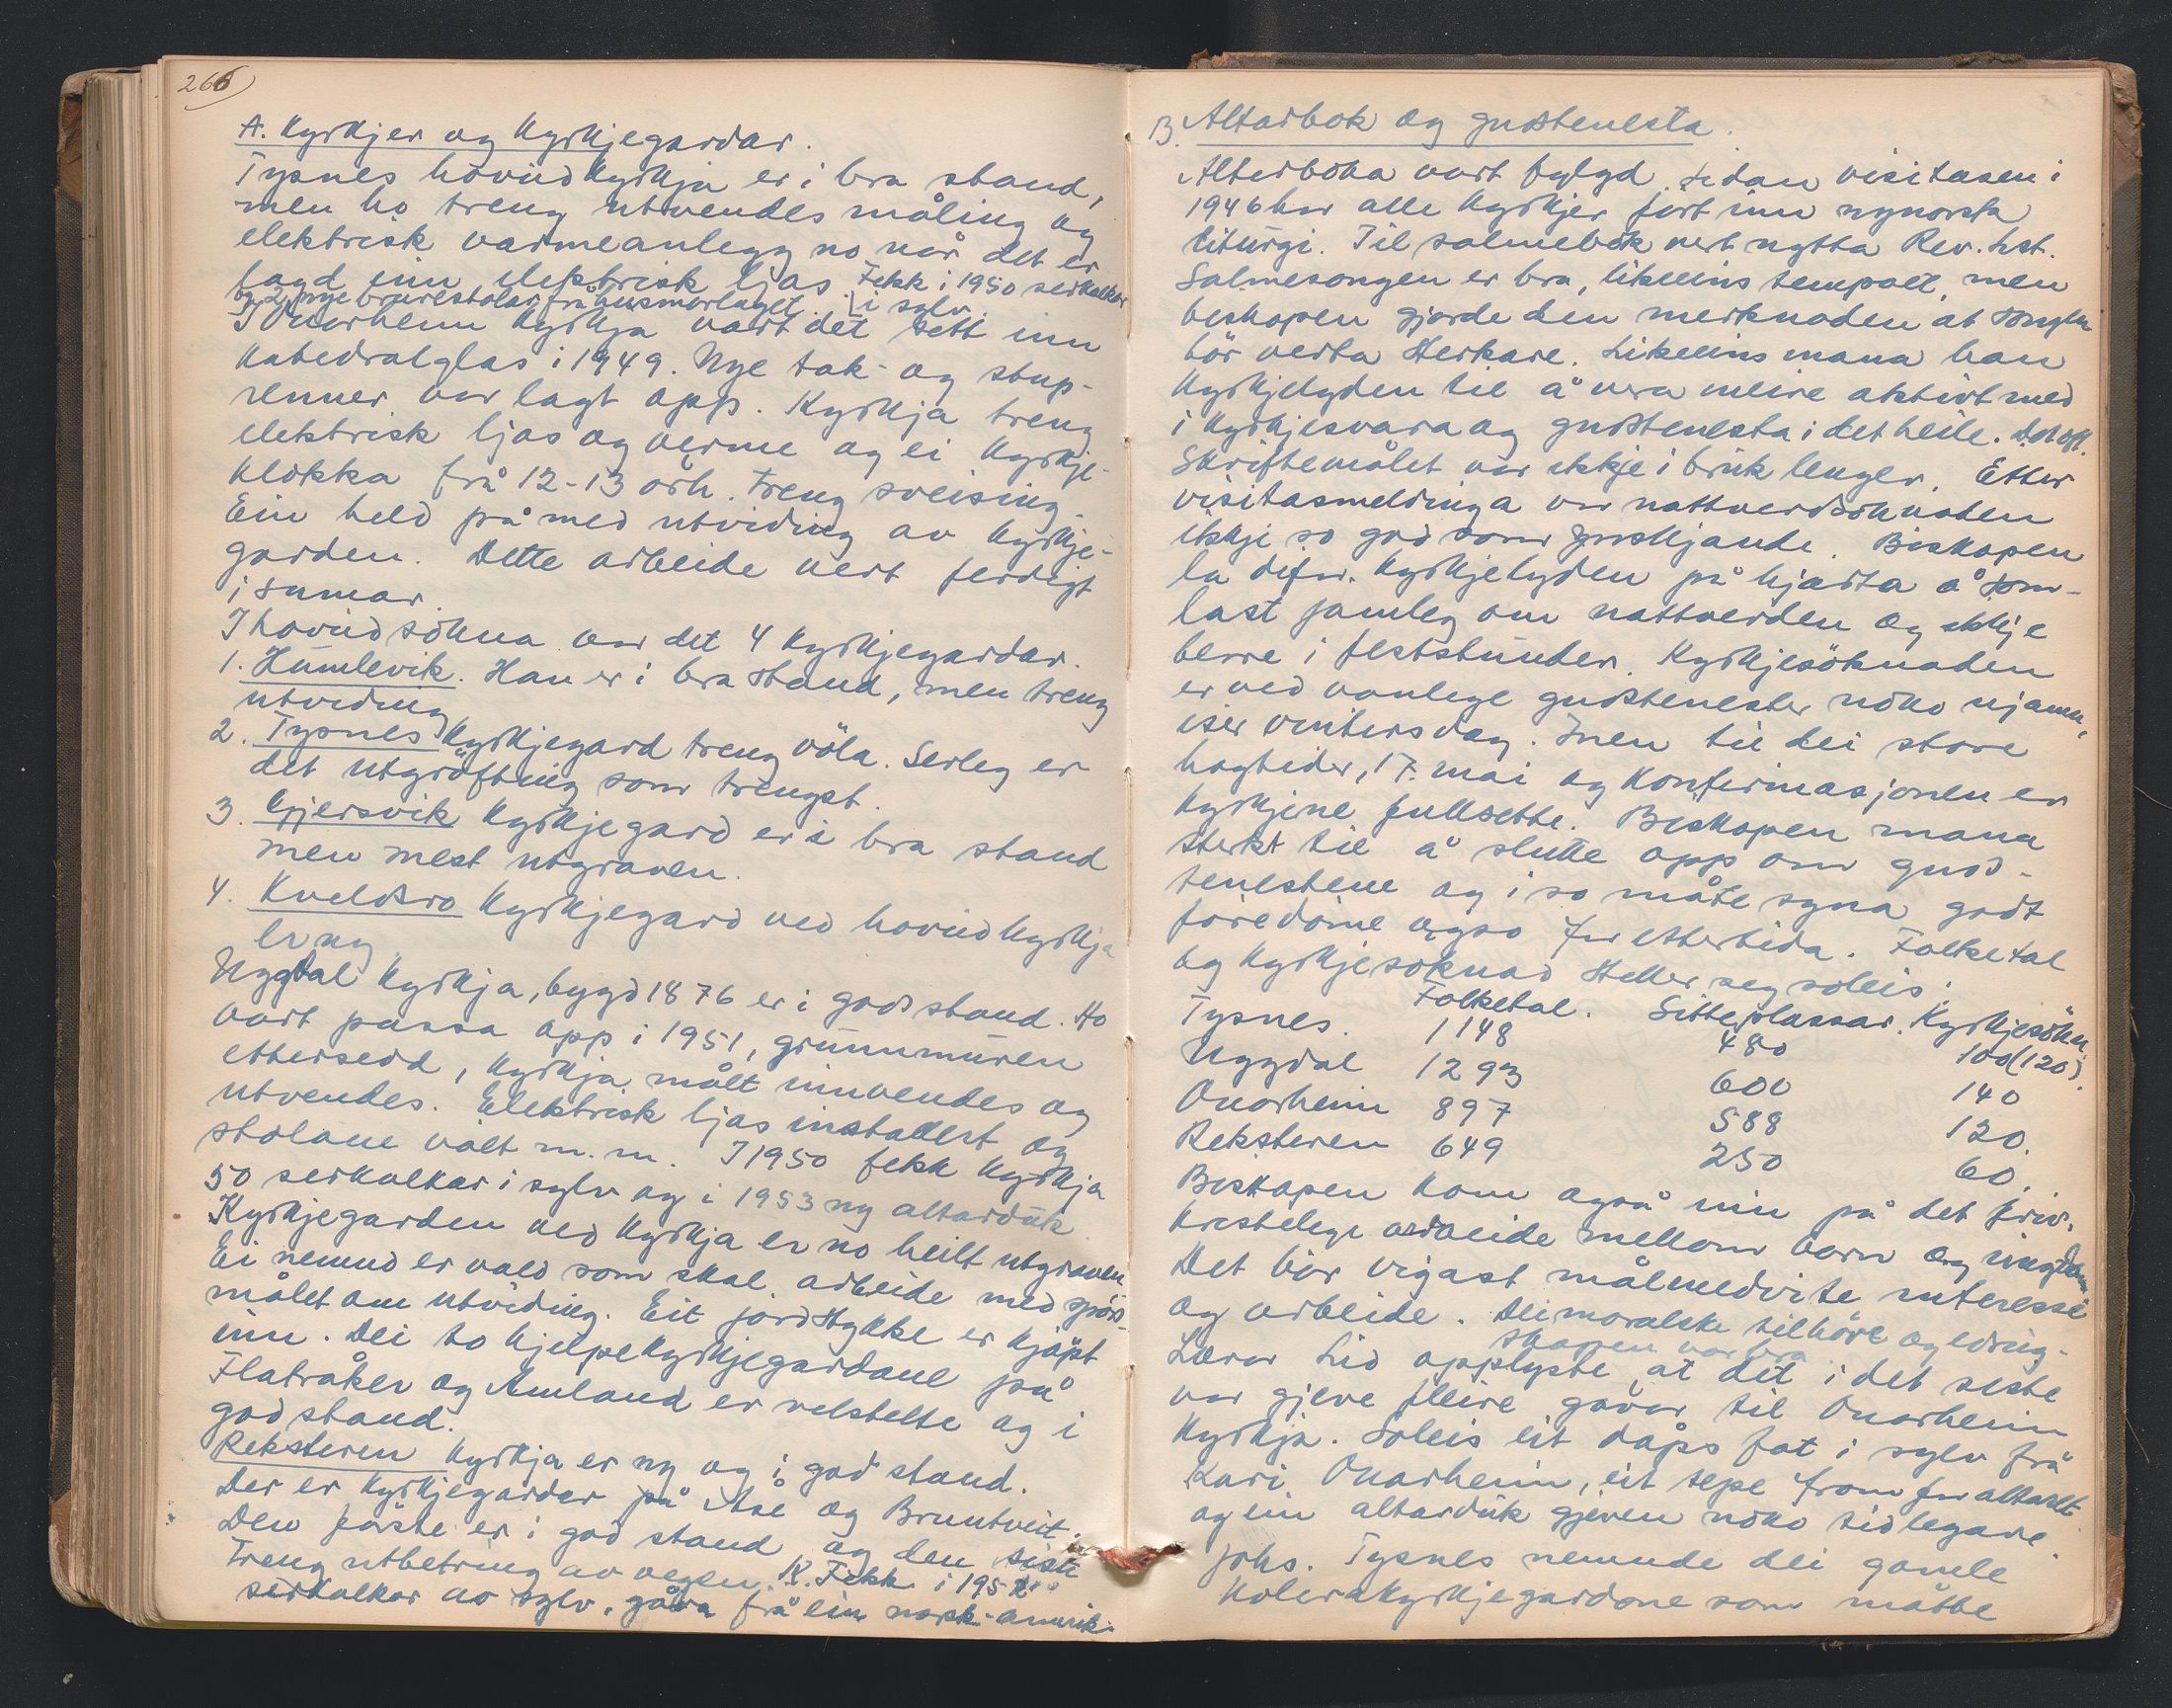 266)
A. Kyrkjer og Kyrkjegardar.
Tysnes hovudkyrkja er i bra stand,
men ho treng utvendes måling og
elektrisk varmeanlegg no når det er
lagd inn elektrisk ljos. Fekk i 1950 serkalkar
og 2 nye brurestolar frå husmorlaget. [i sylv.
I Onarheim kyrkja vart det sett inn
Katedralglas i 1949. Nye tak- og stup-
renner var lagt opp. Kyrkja treng
elektrisk ljos og verme og ei kyrkje-
klokka frå 12-13 årh. treng sveising.
Ein held på med utviding av kyrkje-
garden. Dette arbeide vert ferdigt
i sumar.
I hovudsökna var det 4 kyrkjegardar.
1. Humlevik. Han er i bra stand, men treng
utviding
2. Tysnes kyrkjegard treng völa. Serleg er
det utgröfting som trengst.
3. Gjersvik kyrkjegard er i bra stand
men mest utgraven.
4. Kveldsro kyrkjegard ved hovudkyrkja
er ny
Uggdal kyrkja, bygd 1876 er i god stand. Ho
vart pussa opp i 1951, grunnmuren
ettersedd, kyrkja målt innvendes og
utvendes. Elektrisk ljos installert og
stolane vålt m.m. I 1950 fekk kyrkja
50 serkalkar i sylv og i 1953 ny altarduk
Kyrkjegarden ved kyrkja er no heilt utgraven
Ei nemnd er vald som skal arbeide med spörs-
målet om utviding. Eit jordstykke er kjöpt
inn. Dei to hjelpekyrkjegardane på
Flatråker og Amland er velstelte og i
god stand.
Reksteren kyrkja er ny og i god stand.
Der er kyrkjegardar på Åse og Bruntveit.
Den förste er i god stand og den siste
treng utbetring av vegen. K. Fekk i 195
serkalkar av sylv, gåva frå ein norsk-amerik.
B. Altarbok og gudstenesta.
Alterboka vart fylgd. Sidan visitasen i
1946 har alle kyrkjer fört inn nynorsk
liturgi. Til salmebok vert nytta Rev. Lst.
Salmesongen er bra, likeeins tempoet, men
biskopen gjorde den merknaden at songen
bör verta sterkare. Likeeins mana han
kyrkjelyden til å vera meire aktivt med
i kyrkjesvara og gudstenesta i det heile.
Skriftemålet var ikkje i bruk lenger. Etter
visitasmeldinga var nattverdsöknaden
ikkje so god som ynskjande. Biskopen
la difor kyrkjelyden på hjarta å sam-
last jamleg om nattverden og ikkje
berre i feststunder. Kyrkjesöknaden
er ved vanlege gudstenester noko ujamn,
iser vintersdag. Men til dei store
högtider, 17. mai og Konfirmasjonen er
kyrkjene fullsette. Biskopen mana
sterkt til å slutte opp om guds-
tenestene og i so måte syna godt
föredöme ogso for ettertida. Folketal
og kyrkjesöknad steller seg soleis:
Folketal. Sitteplassar. Kyrkjesökn.
Tysnes. 1148 480 100(120).
Uggdal 1293 600 140
Onarheim 897 588 120.
Reksteren 649 250 60.
Biskopen kom også inn på det friv.
kristelege arbeide mellom born og ungdom
Det bör vigast målmedvite interesse
og arbeide. Dei moralske tilhöve og edrug-
skapen var bra
Lærar Lid opplyste at det i det siste
var gjeve fleire gåvor til Onarheim
Kyrkja. Soleis eit dåps fat i sylv frå
Kari Onarheim, eit tepe fram for altaret
og ein altarduk gjeven noko tidlegare.
Johs. Tysnes nemnde dei gamle
kolerakyrkjegardane som måtte